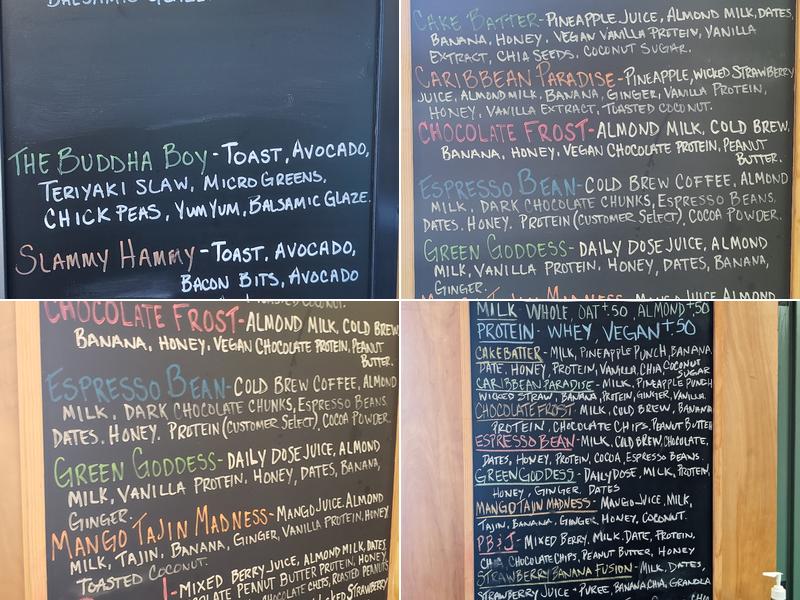 BALSAMIC GLAZE.
THE BUDDHA BOY - TOAST, AVOCADO,
TERIYAKI SLAW, MICRO GREENS,
CHICK PEAS, YUM YUM, BALSAMIC GLAZE.
SLAMMY HAMMY - TOAST, AVOCADO,
BACON BITS, AVOCADO
CAKE BATTER - PINEAPPLE JUICE, ALMOND MILK, DATES,
BANANA, HONEY, VEGAN VANILLA PROTEIN, VANILLA
EXTRACT, CHIA SEEDS, COCONUT SUGAR.
CARIBBEAN PARADISE - PINEAPPLE, WICKED STRAWBERRY
JUICE, ALMOND MILK, BANANA, GINGER, VANILLA PROTEIN,
HONEY, VANILLA EXTRACT, TOASTED COCONUT.
CHOCOLATE FROST - ALMOND MILK, COLD BREW,
BANANA, HONEY, VEGAN CHOCOLATE PROTEIN, PEANUT
BUTTER.
ESPRESSO BEAN - COLD BREW COFFEE, ALMOND
MILK, DARK CHOCOLATE CHUNKS, ESPRESSO BEANS,
DATES, HONEY. PROTEIN (CUSTOMER SELECT), COCOA POWDER.
GREEN GODDESS - DAILY DOSE JUICE, ALMOND
MILK, VANILLA PROTEIN, HONEY, DATES, BANANA,
GINGER.
MANGO TAJIN MADNESS - MANGO JUICE, ALMOND
TOASTED COCONUT.
CHOCOLATE FROST - ALMOND MILK, COLD BREW,
BANANA, HONEY, VEGAN CHOCOLATE PROTEIN, PEANUT
BUTTER.
ESPRESSO BEAN - COLD BREW COFFEE, ALMOND
MILK, DARK CHOCOLATE CHUNKS, ESPRESSO BEANS,
DATES, HONEY. PROTEIN (CUSTOMER SELECT), COCOA POWDER.
GREEN GODDESS - DAILY DOSE JUICE, ALMOND
MILK, VANILLA PROTEIN, HONEY, DATES, BANANA,
GINGER.
MANGO TAJIN MADNESS - MANGO JUICE, ALMOND
MILK, TAJIN, BANANA, GINGER, VANILLA PROTEIN, HONEY,
TOASTED COCONUT.
MIXED BERRY JUICE, ALMOND MILK, DATES,
PEANUT BUTTER PROTEIN, HONEY,
CHOCOLATE CHIPS, ROASTED PEANUTS
STRAWBERRY
MILK WHOLE, OAT +50, ALMOND +50
PROTEIN - WHEY, VEGAN +50
CAKE BATTER - MILK, PINEAPPLE PUNCH, BANANA,
DATE, HONEY, PROTEIN, VANILLA, CHIA COCONUT
SUGAR
CARIBBEAN PARADISE - MILK, PINEAPPLE PUNCH
WICKED STRAW, BANANA, PROTEIN, GINGER, VANILLA.
CHOCOLATE FROST - MILK, COLD BREW, BANANA
PROTEIN, CHOCOLATE CHIPS, PEANUT BUTTER
ESPRESSO BEAN - MILK, COLD BREW, CHOCOLATE,
DATES, HONEY, PROTEIN, COCOA, ESPRESSO BEANS.
GREEN GODDESS - DAILY DOSE, MILK, PROTEIN,
HONEY, GINGER, DATES
MANGO TAJIN MADNESS - MANGO-VICE, MILK,
TAJIN, BANANA, GINGER, HONEY, COCONUT.
PB & J - MIXED BERRY, MILK, DATE, PROTEIN,
CHIA, CHOCOLATE CHIPS, PEANUT BUTTER, HONEY
STRAWBERRY BANANA FUSION - MILK, DATES,
STRAWBERRY JUICE - PUREE, BANANA, CHIA, GRANOLA